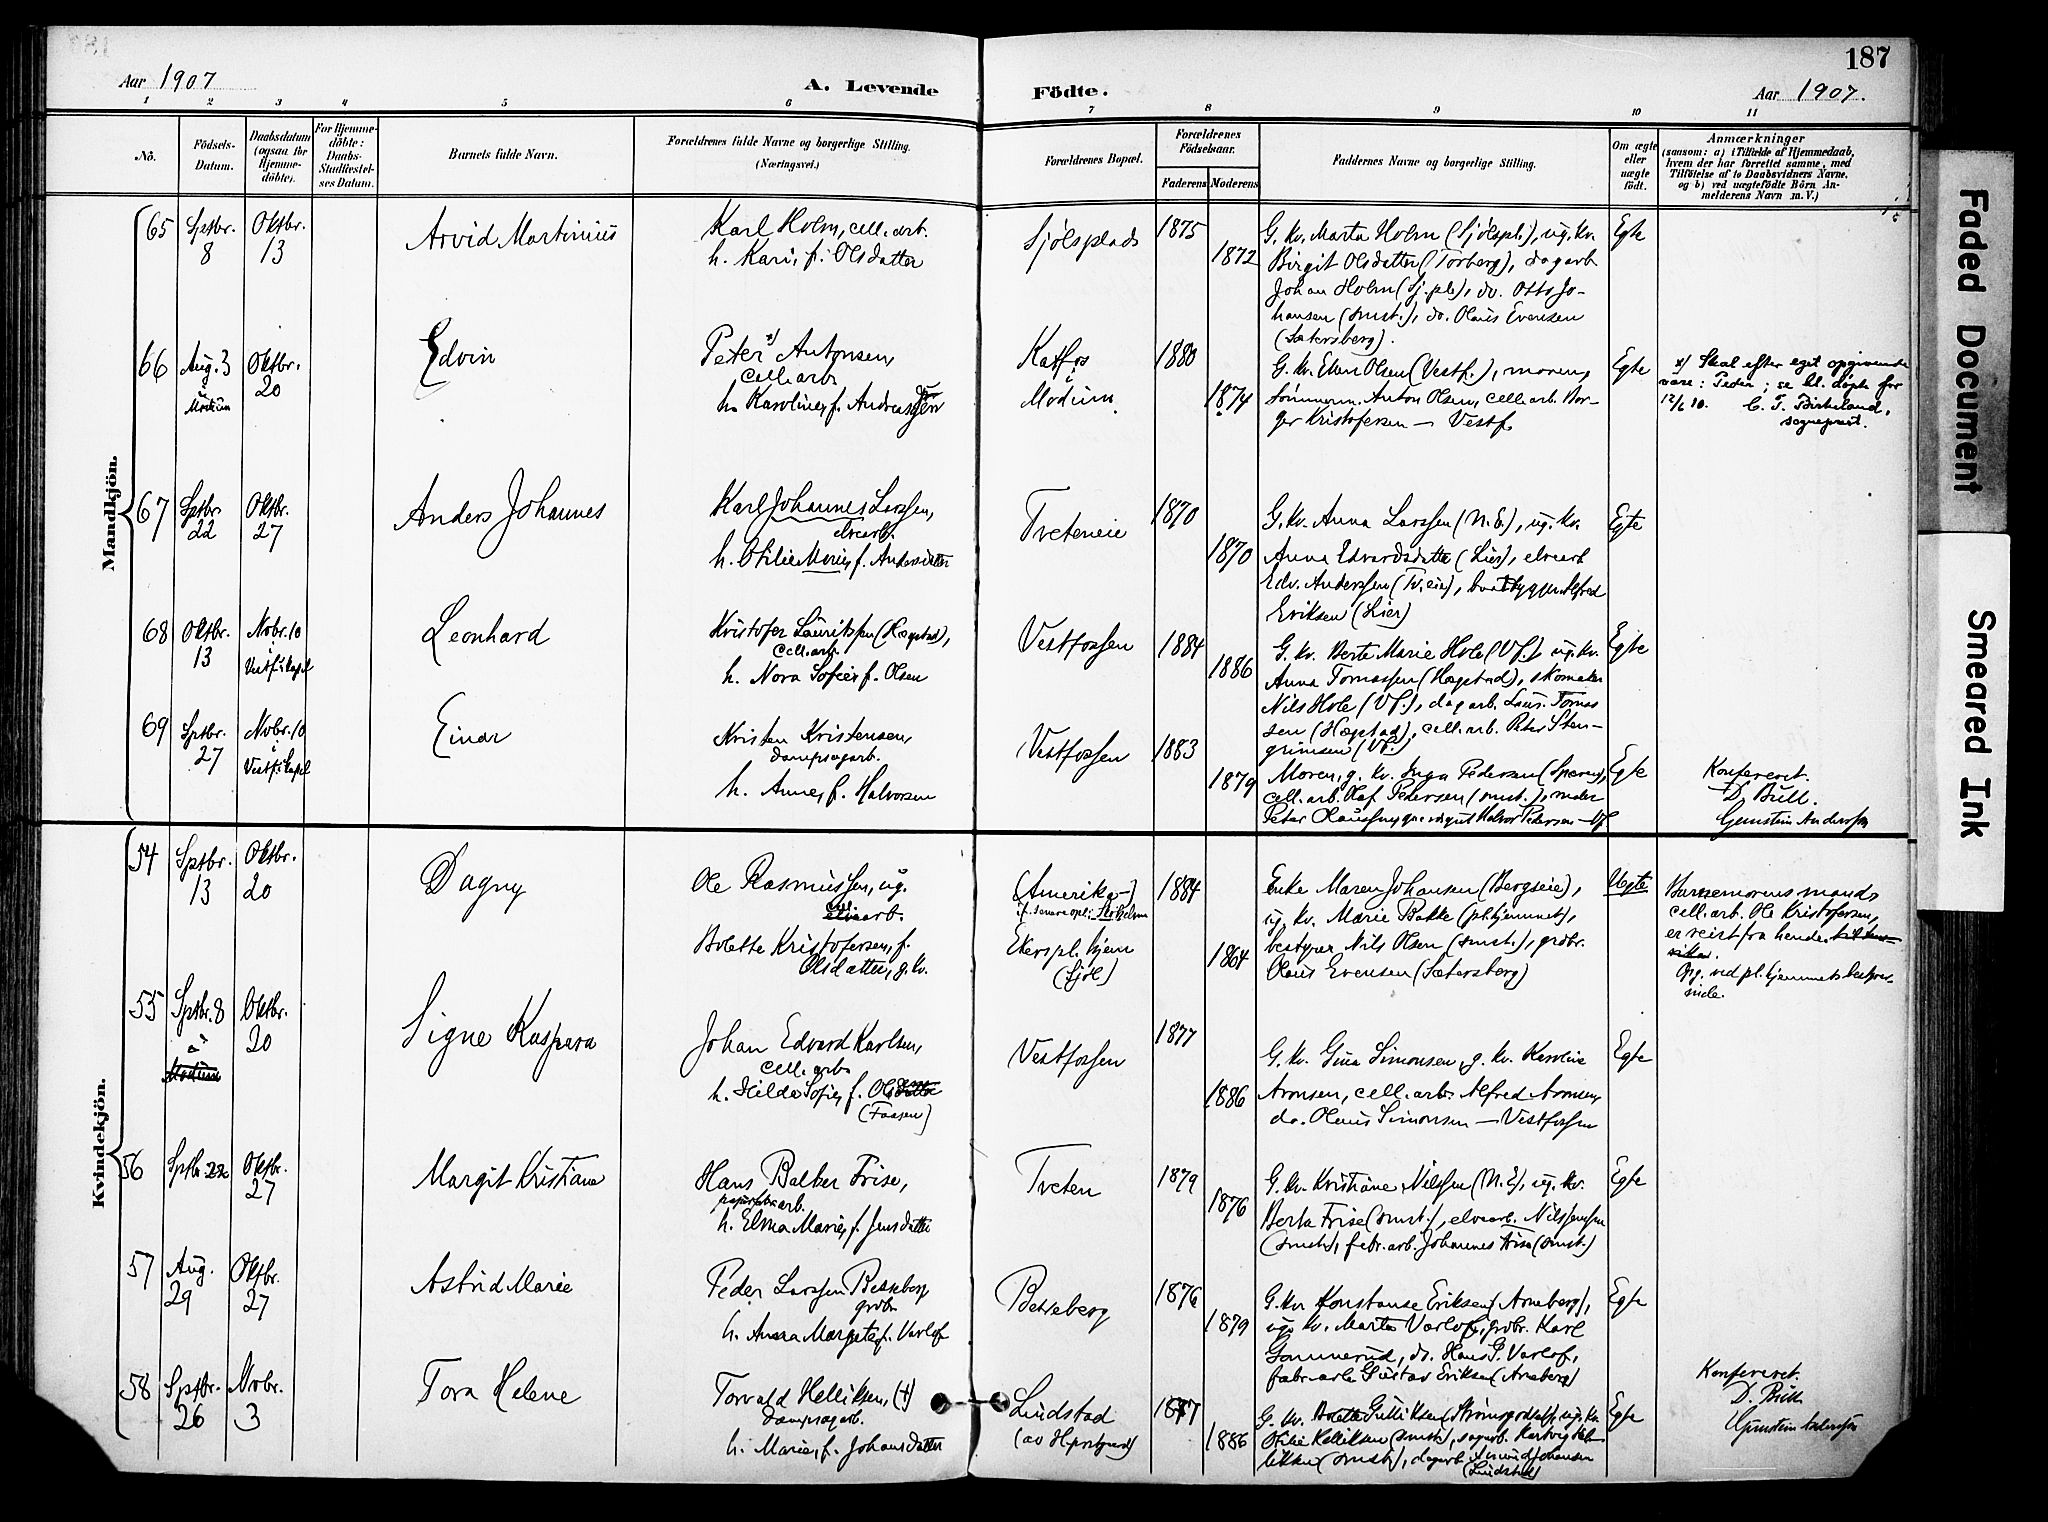 187
Aar 1907
A. Levende
Födte.
Aar 1907.
1 2 3 4 5 6 7 8 9 10 11
No.
Födsels-
Datum.
Daabsdatum
(ogsaa for
Hjemme-
döbte).
For Hjemme-
döbte:
Daabs-
Stadfæstel-
ses Datum.
Barnets fulde Navn.
Forældrenes fulde Navne og borgerlige Stilling.
(Næringsvei.)
Forældrenes Bopæl.
Forældrenes
Födselsaar.
Faderens
Moderens
Faddernes Navne og borgerlige Stilling.
Om ægte
eller
uægte
födt.
Anmærkninger
(saasom: a) i Tilfælde af Hjemmedaab,
hvem der har forrettet samme, med
Tilföielse af to Daabsvidners Navne.
og b) ved uægtefödte Börn An-
melderens Navn m. V.)
Mandkjön.
65
Sptbr.
8
Oktbr.
13
Arvid Martinius
Karl Holm, cell. arb.
h. Kari, f. Olsdatter
Sjölsplads
1875
1872
G. kv. Marta Holm (Sjölspl.), ug. kv.
Birgit Olsdatter (Torberg), dagarb
Johan Holm (Sj. pl.), do. Otto Jo-
hansen (smst.), do. Olaus Evensen
(Sætersberg).
Egte
66
Aug. 3
i
Modum
Oktbr.
20
Edvin
Peter x) Antonsen,
cell. arb.
h. Karoline, f. Andreassen
Katfos
i
Modum
1880
1874
G. kv. Elen Olsen (Vestf.), moren,
tömmerm. Anton Olsen, cell. arb. Bor-
ger Kristofersen — Vestf.
Egte
x) Skal efter eget opgivende
være: Peder; se bl. døpte for
12/6 10. C. T. Birkeland,
sogneprest.
67
Sptbr.
22
Oktbr.
27
Anders Johannes
Karl Johannes Larssen,
elvearb.
h. Otilie Marie, f. Andersdatter
Tveteneie
1870
1870
G. kv. Anna Larssen (N. E.), ug. kv.
Anna Edvardsdatter (Lier), elvearb
Edv. Anderssen (Tv. eie), baatbygger Alfred
Eriksen (Lier)
Egte
68
Oktbr.
13
Novbr. 10
i
Vestf. kapel
Leonhard
Kristofer Lauritssen (Hægstad),
cell. arb.
h. Nora Sofie, f. Olsen
Vestfossen
1884
1886
G. kv. Berte Marie Hole (Vf.), ug. kv.
Anna Tomassen (Hægstad), skomaker
Nils Hole (Vf.), dagarb. Laur. Tomas
sen (Hægstad), cell. arb. Peter Sten-
grimsen (Vf.)
Egte
69
Sptbr.
27
Novbr. 10
i
Vestf. kapel
Einar
Kristen Kristensen,
dampsagarb.
h. Anne, f. Halvorsen
Vestfossen
1883
1879
Moren, g. kv. Inga Pedersen (Speren),
cell. arb. Olaf Pedersen (smst.),
Peter Halvor Petersen — Vf
Egte
Konfereret.
D. Bull.
Gunstein Anderssen
Kvindekjön.
54
Sptbr.
13
Oktbr.
20
Dagny
Ole Rasmussen, ug.
cell. elvearb.
Bolette Kristofersen, f.
Olsdatter, g. kv.
(Amerika)
Ekers pl. hjem
(Sjöl)
1884
1864
Enke Maren Johansen (Bergseie),
ug. kv. Marie Bakke (pl. hjemmet),
bestyrer Nils Olsen (smst.), grdbr.
Olaus Evensen (Sætersberg)
Uegte
Barnemorens mand
cell. arb. Ole Kristofersen,
er reist fra hende.
Opg. ved pl. hjemmets bestyrer-
inde.
55
Sptbr. 8
i
Modum
Oktbr.
20
Signe Kaspara
Johan Edvard Karlsen,
cell. arb.
h. Hilda Sofie, f. Olsen
(Faasen)
Vestfossen
1877
1886
G. kv. Gina Simonsen, g. kv. Karoline
Aronsen, cell. arb. Alfred Aronsen,
do. Olaus Simonsen — Vestfossen
Egte
56
Sptbr. 22
Oktbr.
27
Margit Kristiane
Hans Balker Frise,
papirfabr. arb.
h. Elma Marie, f. Jensdatter
Tveten
1879
1876
G. kv. Kristiane Nilssen (N. E), ug. kv.
Berta Frise (smst.), elvearb. Nils Jenssen
(smst.), fabr. arb. Johannes Frise (smst.)
Egte
57
Aug.
29
Oktbr.
27
Astrid Marie
Peder Larssen Besseberg
grdbr.
h. Anna Margrete, f. Varlof
Besseberg
1876
1879
G. kv Konstanse Eriksen (Arneberg),
ug. kv. Marta Varlof, grdbr. Karl
Gommerud, do. Hans G. Varlof,
fabr. arb. Gustav Eriksen (Arneberg)
Egte
58
Sptbr.
26
Novbr.
3
Tora Helene
Torvald Helliksen, (†)
dampsagarb.
h. Marie, f. Johansdatter
Lindstad
1877
1886
G. kv. Bolette Gulliksen (Strømsgodset), ug. kv.
Otilie Helliksen (smst.), sagarb. Hartvig Hel-
liksen (smst.), dagarb. Amund Johansen
(Lindstad)
Egte
Konfereret.
D. Bull
Gunstein Anderssen
Faded Document
Smeared Ink